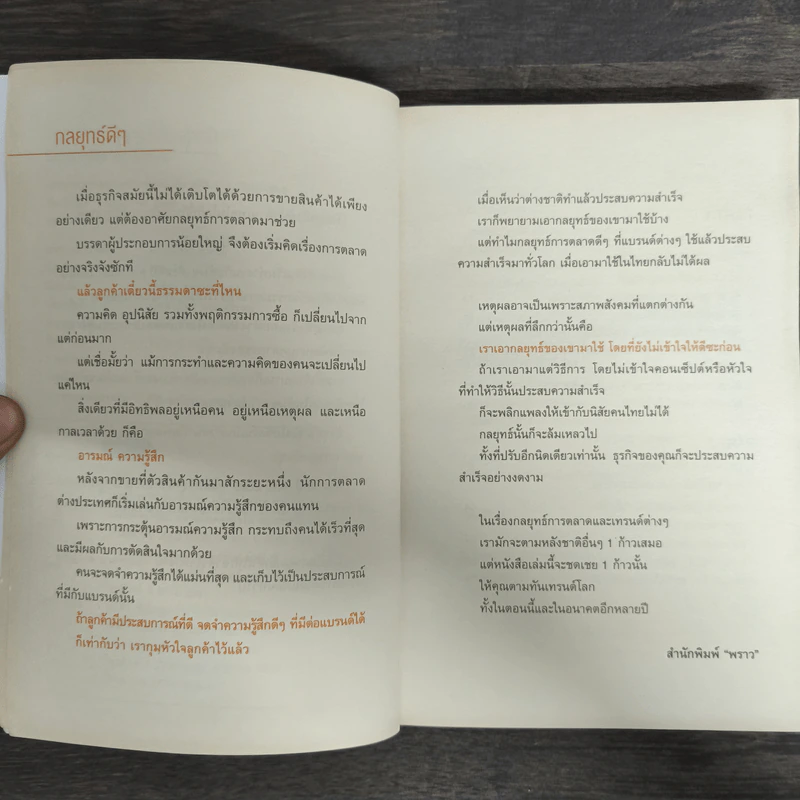 กลยุทธ์ดีๆ
เมื่อธุรกิจสมัยนี้ไม่ได้เติบโตได้ด้วยการขายสินค้าได้เพียง
อย่างเดียว แต่ต้องอาศัยกลยุทธ์การตลาดมาช่วย
บรรดาผู้ประกอบการน้อยใหญ่ จึงต้องเริ่มคิดเรื่องการตลาด
อย่างจริงจังซักที
แล้วลูกค้าเดี๋ยวนี้ธรรมดาซะที่ไหน
ความคิด อุปนิสัย รวมทั้งพฤติกรรมการซื้อ ก็เปลี่ยนไปจาก
แต่ก่อนมาก
แต่เชื่อมั้ยว่า แม้การกระทำและความคิดของคนจะเปลี่ยนไป
แค่ไหน
สิ่งเดียวที่มีอิทธิพลอยู่เหนือคน อยู่เหนือเหตุผล และเหนือ
กาลเวลาด้วย ก็คือ
อารมณ์ ความรู้สึก
หลังจากขายที่ตัวสินค้ากันมาสักระยะหนึ่ง นักการตลาด
ต่างประเทศก็เริ่มเล่นกับอารมณ์ความรู้สึกของคนแทน
เพราะการกระตุ้นอารมณ์ความรู้สึก กระทบถึงคนได้เร็วที่สุด
และมีผลกับการตัดสินใจมากด้วย
คนจะจดจำความรู้สึกได้แม่นที่สุด และเก็บไว้เป็นประสบการณ์
ที่มีกับแบรนด์นั้น
ถ้าลูกค้ามีประสบการณ์ที่ดี จดจำความรู้สึกดีๆ ที่มีต่อแบรนด์ได้
ก็เท่ากับว่า เรากุมหัวใจลูกค้าไว้แล้ว
เมื่อเห็นว่าต่างชาติทำแล้วประสบความสำเร็จ
เราก็พยายามเอากลยุทธ์ของเขามาใช้บ้าง
แต่ทำไมกลยุทธ์การตลาดดีๆ ที่แบรนด์ต่างๆ ใช้แล้วประสบ
ความสำเร็จมาทั่วโลก เมื่อเอามาใช้ในไทยกลับไม่ได้ผล
เหตุผลอาจเป็นเพราะสภาพสังคมที่แตกต่างกัน
แต่เหตุผลที่ลึกกว่านั้นคือ
เราเอากลยุทธ์ของเขามาใช้ โดยที่ยังไม่เข้าใจให้ดีซะก่อน
ถ้าเราเอามาแต่วิธีการ โดยไม่เข้าใจคอนเซ็ปต์หรือหัวใจ
ที่ทำให้วิธีนั้นประสบความสำเร็จ
ก็จะพลิกแพลงให้เข้ากับนิสัยคนไทยไม่ได้
กลยุทธ์นั้นก็จะล้มเหลวไป
ทั้งที่ปรับอีกนิดเดียวเท่านั้น ธุรกิจของคุณก็จะประสบความ
สำเร็จอย่างงดงาม
ในเรื่องกลยุทธ์การตลาดและเทรนด์ต่างๆ
เรามักจะตามหลังชาติอื่นๆ 1 ก้าวเสมอ
แต่หนังสือเล่มนี้จะชดเชย 1 ก้าวนั้น
ให้คุณตามทันเทรนด์โลก
ทั้งในตอนนี้และในอนาคตอีกหลายปี
สำนักพิมพ์ "พราว"